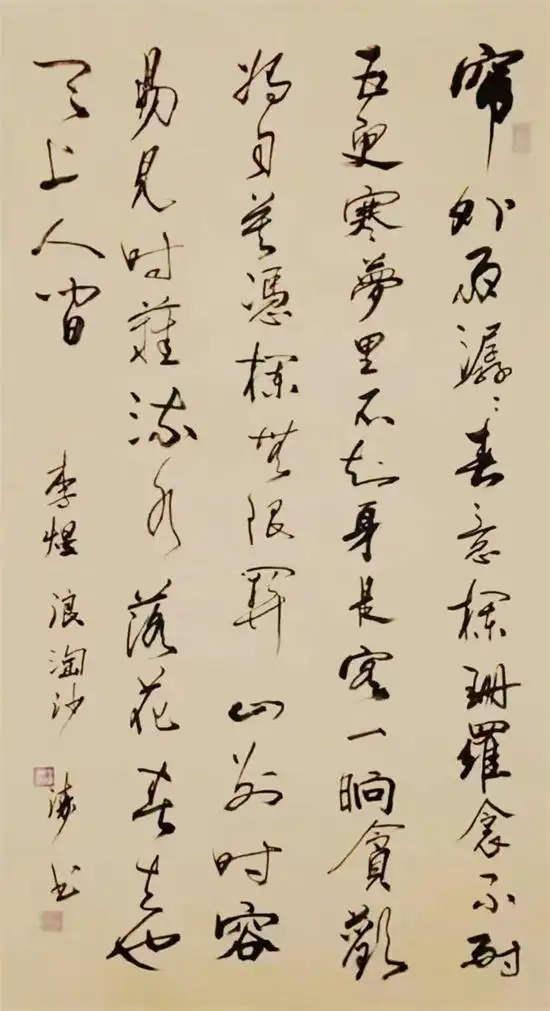 帘外雨潺〻春意欄珊羅衾不耐
五更寒夢里不知身是客一晌貪歡
獨自莫憑欄無限關山别时容
易見时難流水落花春去也
天上人間
李煜 浪淘沙 书